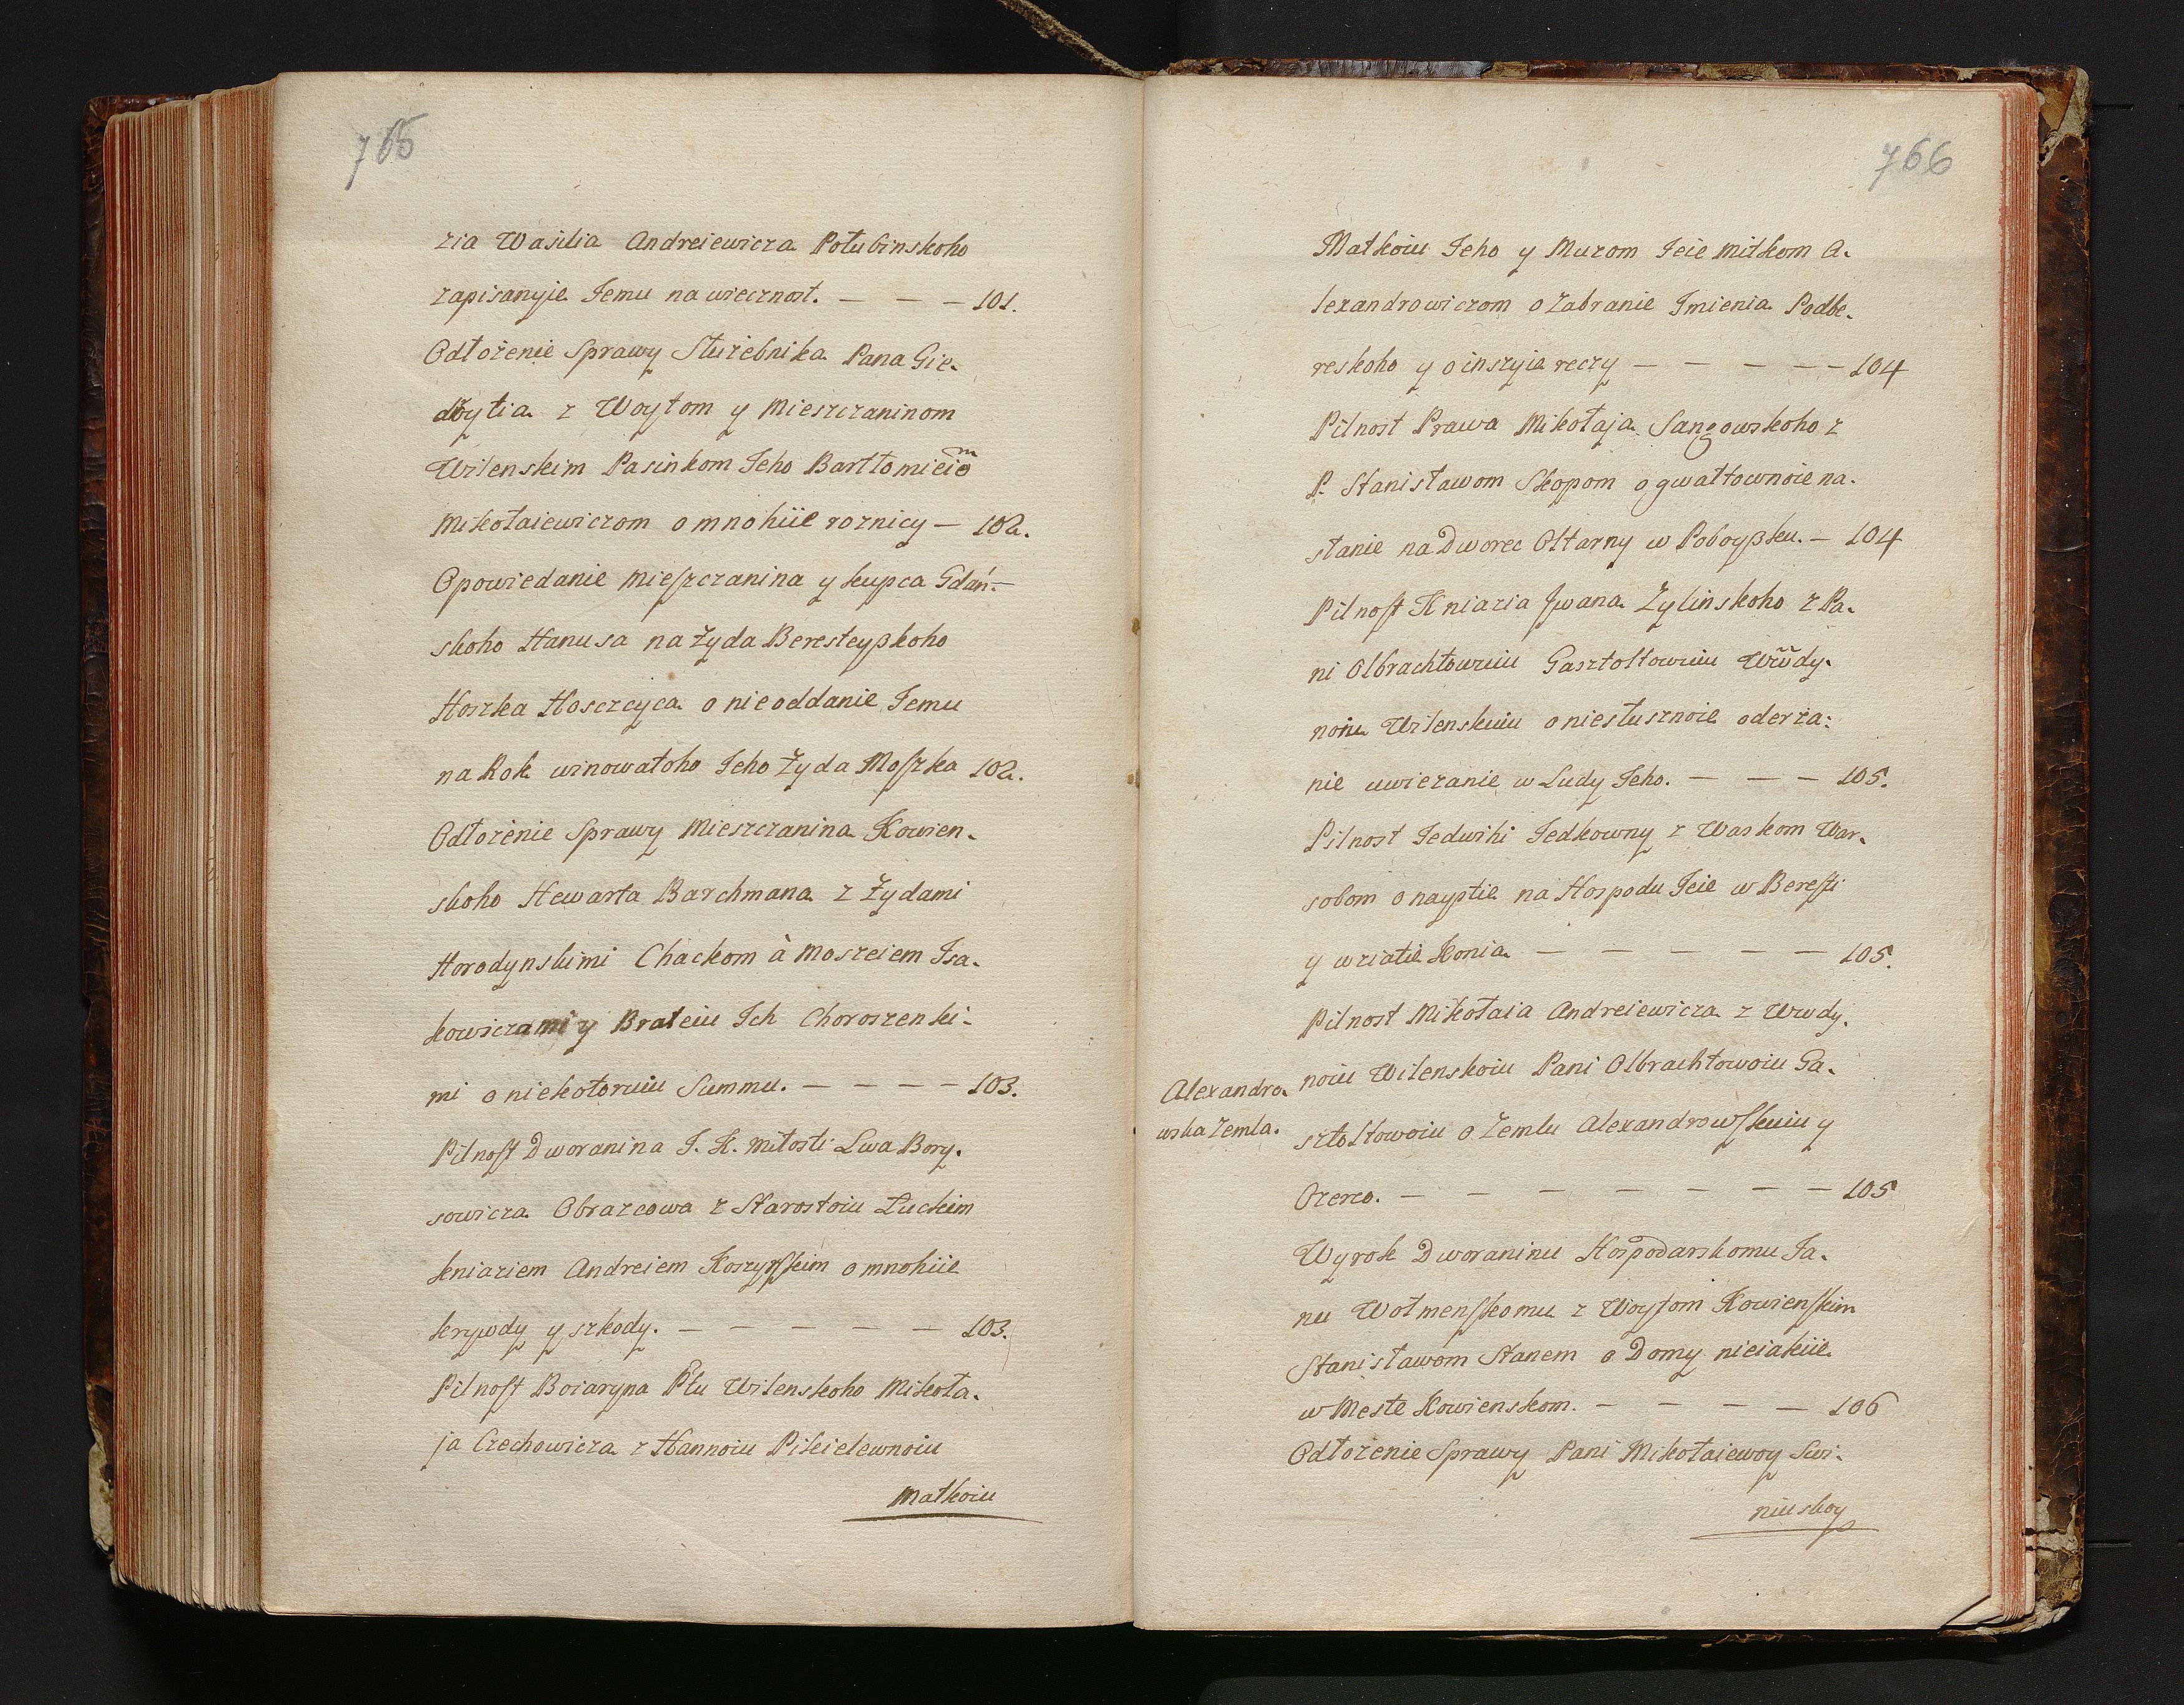 765
zia Wasilia Andreiewicza Połubinskoho
zapisanyje Jemu na wiecznost. — — — 101.
Odłożenie Sprawy Służebnika Pana Gie-
dbytia z Woytom y Mieszczaninom
Wilenskim Pasinkom Jeho Bartłomieio͞m
Mikołaiewiczom o mnohiie roznicy — 102.
Opowiedanie Mieszczanina y kupca Gdań-
skoho Hanusa na Żyda Beresteyßkoho
Hoszka Hosczcyca o nieoddanie Jemu
na Rok winowatoho Jeho Żyda Moszka 102.
Odłożenie Sprawy Mieszczanina Kowien-
skoho Hewarta Barchmana z Żydami
Horodynskimi Chackom à Moszeiem Isa-
kowiczami y Brateiu Ich Choroszenki-
mi o niekotoruiu Summu. — — — — 103.
Pilnost Dworanina J. K. miłosti Lwa Bory-
sowicza Obrazcowa z Starostoiu Łuckim
kniaziem Andreiem Koszyrskim o mnohiie
krywdy y szkody. — — — — — 103.
Pilnost Boiaryna Ptu Wilenskoho Mikoła-
ja Czechowicza z Hannoiu Pikielewnoiu
Matkoiu
766
Matkoiu Jeho y Muzom Jeie Mitkom A-
lexandrowiczom o Zabranie Jmienia Podbe-
reskoho y o inszyie reczy — — — — — 104
Pilnost Prawa Mikołaja Sangowskoho z
P. Stanisławom Skopom o gwałtownoie na-
słanie na Dworec Ołtarny w Poboyßku. — 104
Pilnost Kniazia Jwana Żylinskoho z Pa-
ni Olbrachtowuiu Gasztoltowuiu Wwdy-
noiu Wilenskuiu o niesłusznoie oderża-
nie uwiezanie w Ludy Jeho. — — — 105.
Pilnost Jedwihi Jedkowny z Waskom War-
sobom o nayßtie na Hospodu Jeie w Beresti
y wziatie Konia — — — — — 105.
Pilnost Mikołaia Andreiewicza z Wwdy-
noiu Wilenskoiu Pani Olbrachtowoiu Ga-
sztoltowoiu o Zemlu Alexandrowskuiu y
Ozerco. — — — — — — — 105
Alexandro-
wska Zemla.
Wyrok Dworaninu Hospodarskomu Ja-
nu Wołmenskomu z Woytom Kowienskim
Stanisławom Stanem o Domy nieiakiie
w Meste Kowienskom. — — — — 106
Odłożenie Sprawy Pani Mikołaiewoy Swi-
niuskoy